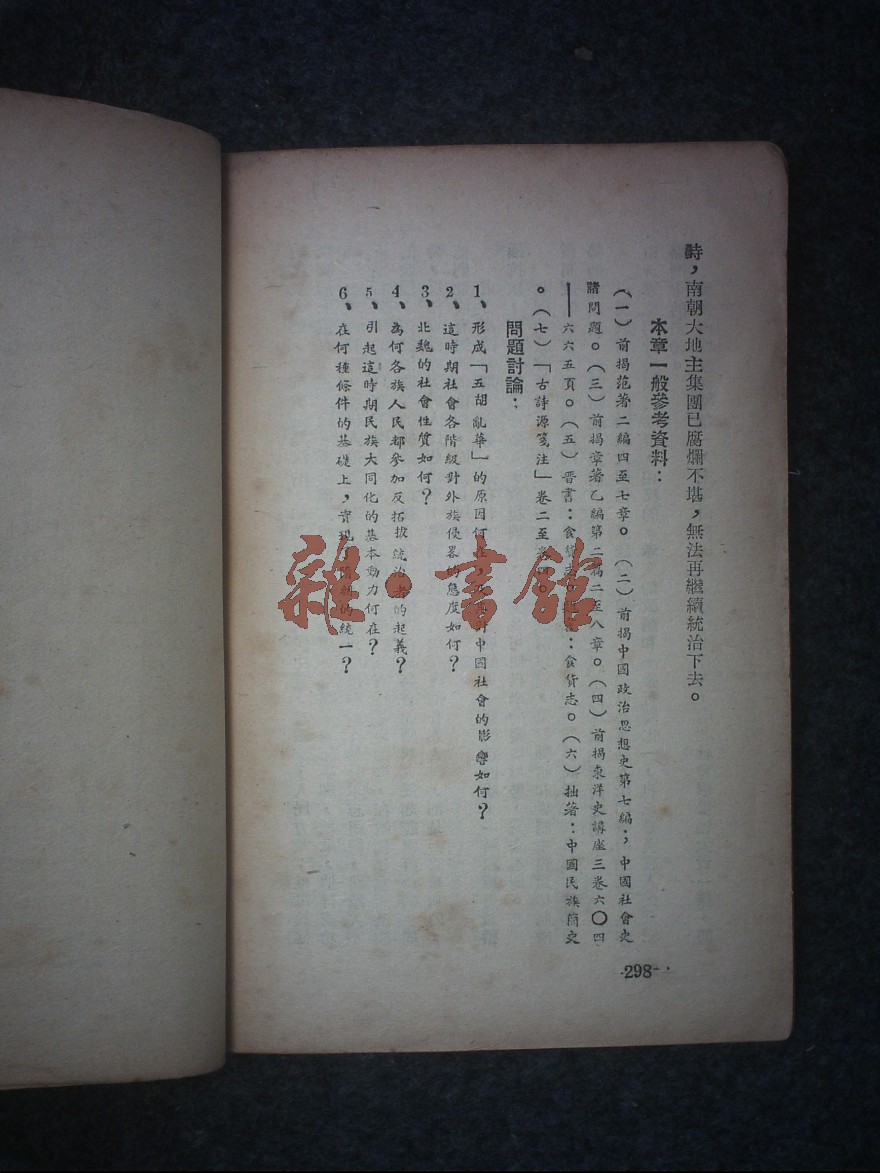 時，南朝大地主集團已腐爛不堪，無法再繼續統治下去。
本章一般參考資料：
（一）前揭范著二編四至七章。（二）前揭中國政治思想史第七編；中國社會史
諸問題。（三）前揭章著乙編第二篇二至八章。（四）前揭東洋史講座三卷六〇四
——六六五頁。（五）晉書：食貨志。：食貨志。（六）拙著：中國民族簡史
。（七）「古詩源箋注」卷二至。
問題討論：
1、形成「五胡亂華」的原因何，中國社會的影響如何？
2、這時期社會各階級對外族侵畧的態度如何？
3、北魏的社會性質如何？
4、為何各族人民都參加反拓拔統治者的起義？
5、引起這時期民族大同化的基本動力何在？
6、在何種條件的基礎上，實現的統一？
·298·
雜·書館